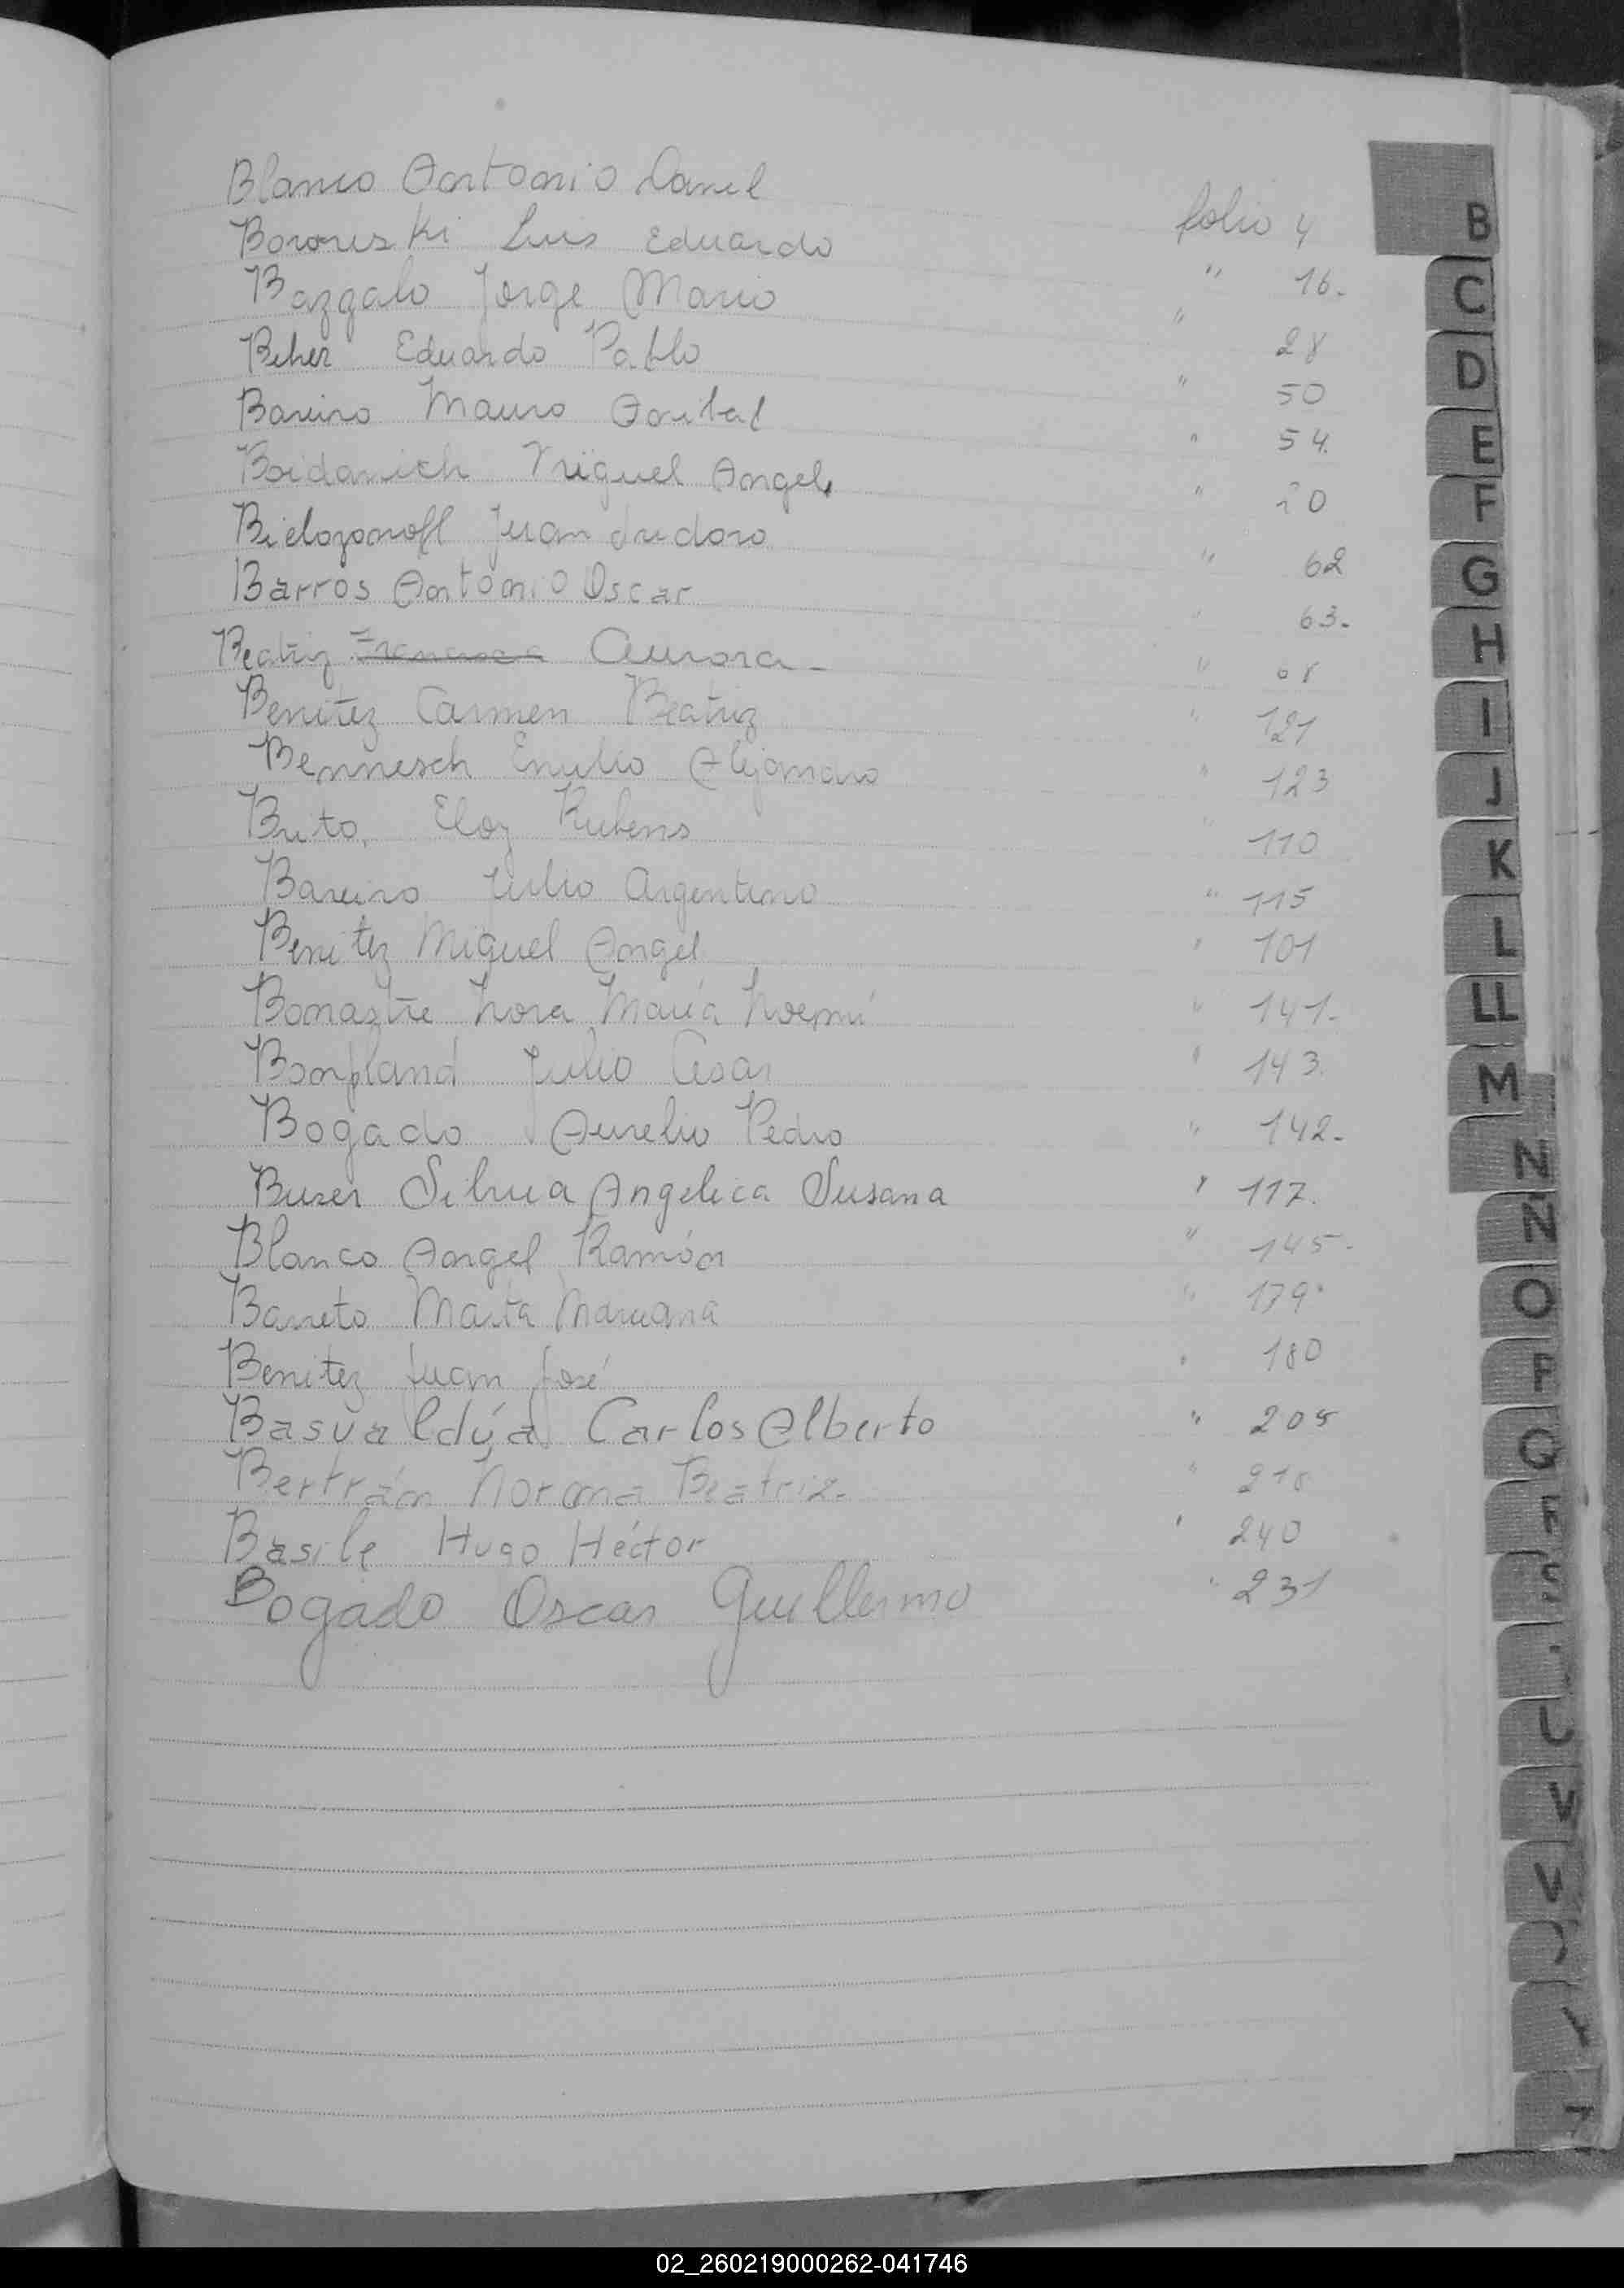 Blanco Antonio Daniel folio 4
Borowski Luis Eduardo " 16.
Bazgalo Jorge Mario " 28
Beher Eduardo Pablo " 50
Bareiro Mauro Anibal " 54.
Boidanich Miguel Angel "
Bielozonoff Juan Isidoro " 62
Barros Antonio Oscar " 63.
Beatriz Francisca Aurora - "
Benitez Carmen Beatriz " 121
Bennesch Emilio Alejandro " 123
Brito, Eloy Rubens " 110
Bareiro Julio Argentino " 115
Benitez Miguel Angel " 101
Bonastre Nora María Noemí " 141-
Bonpland Julio Cesar " 143.
Bogado Aurelio Pedro " 142-
Buser Silvia Angelica Susana " 117.
Blanco Angel Ramón " 145-
Barreto Marta Mariana " 179
Benitez Juan José " 180
Basualdúa Carlos Alberto " 205
Bertrán Norma Beatriz. " 218
Basile Hugo Héctor " 240
Bogado Oscar Guillermo " 231
B
C
D
E
F
G
H
I
J
K
L
LL
M
N
Ñ
O
P
Q
R
S
U
V
Y
Z
02_260219000262-041746